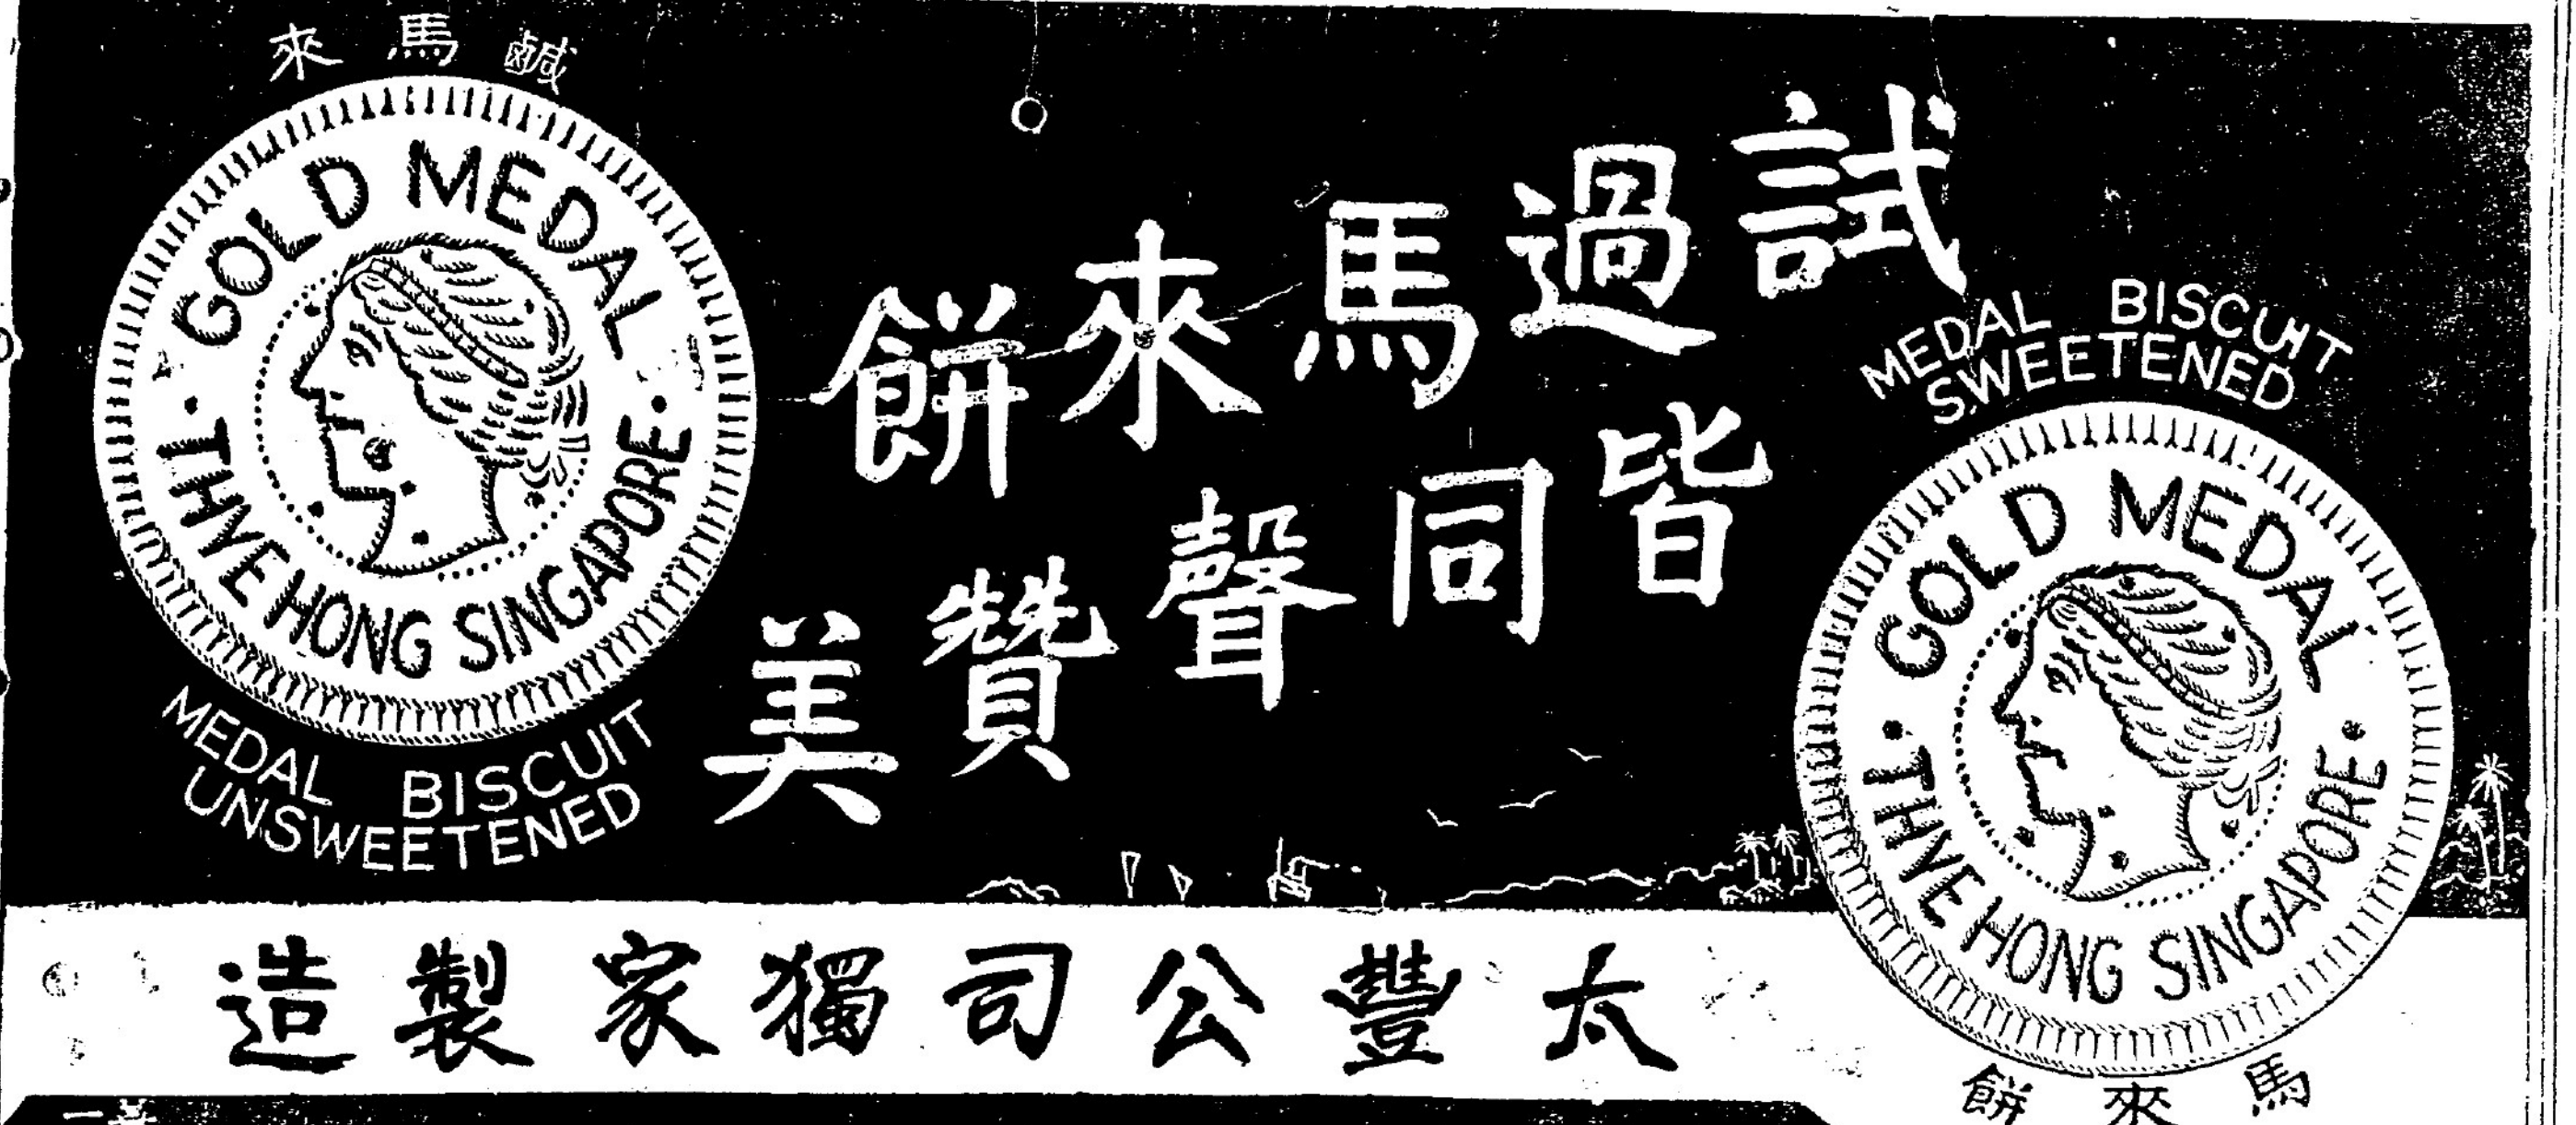 鹹馬來
GOLD MEDAL
THYE HONG SINGAPORE
MEDAL BISCUIT
UNSWEETENED
試過馬來餅
皆同聲贊美
MEDAL BISCUIT
SWEETENED
GOLD MEDAL
THYE HONG SINGAPORE
馬來餅
太豐公司獨家製造